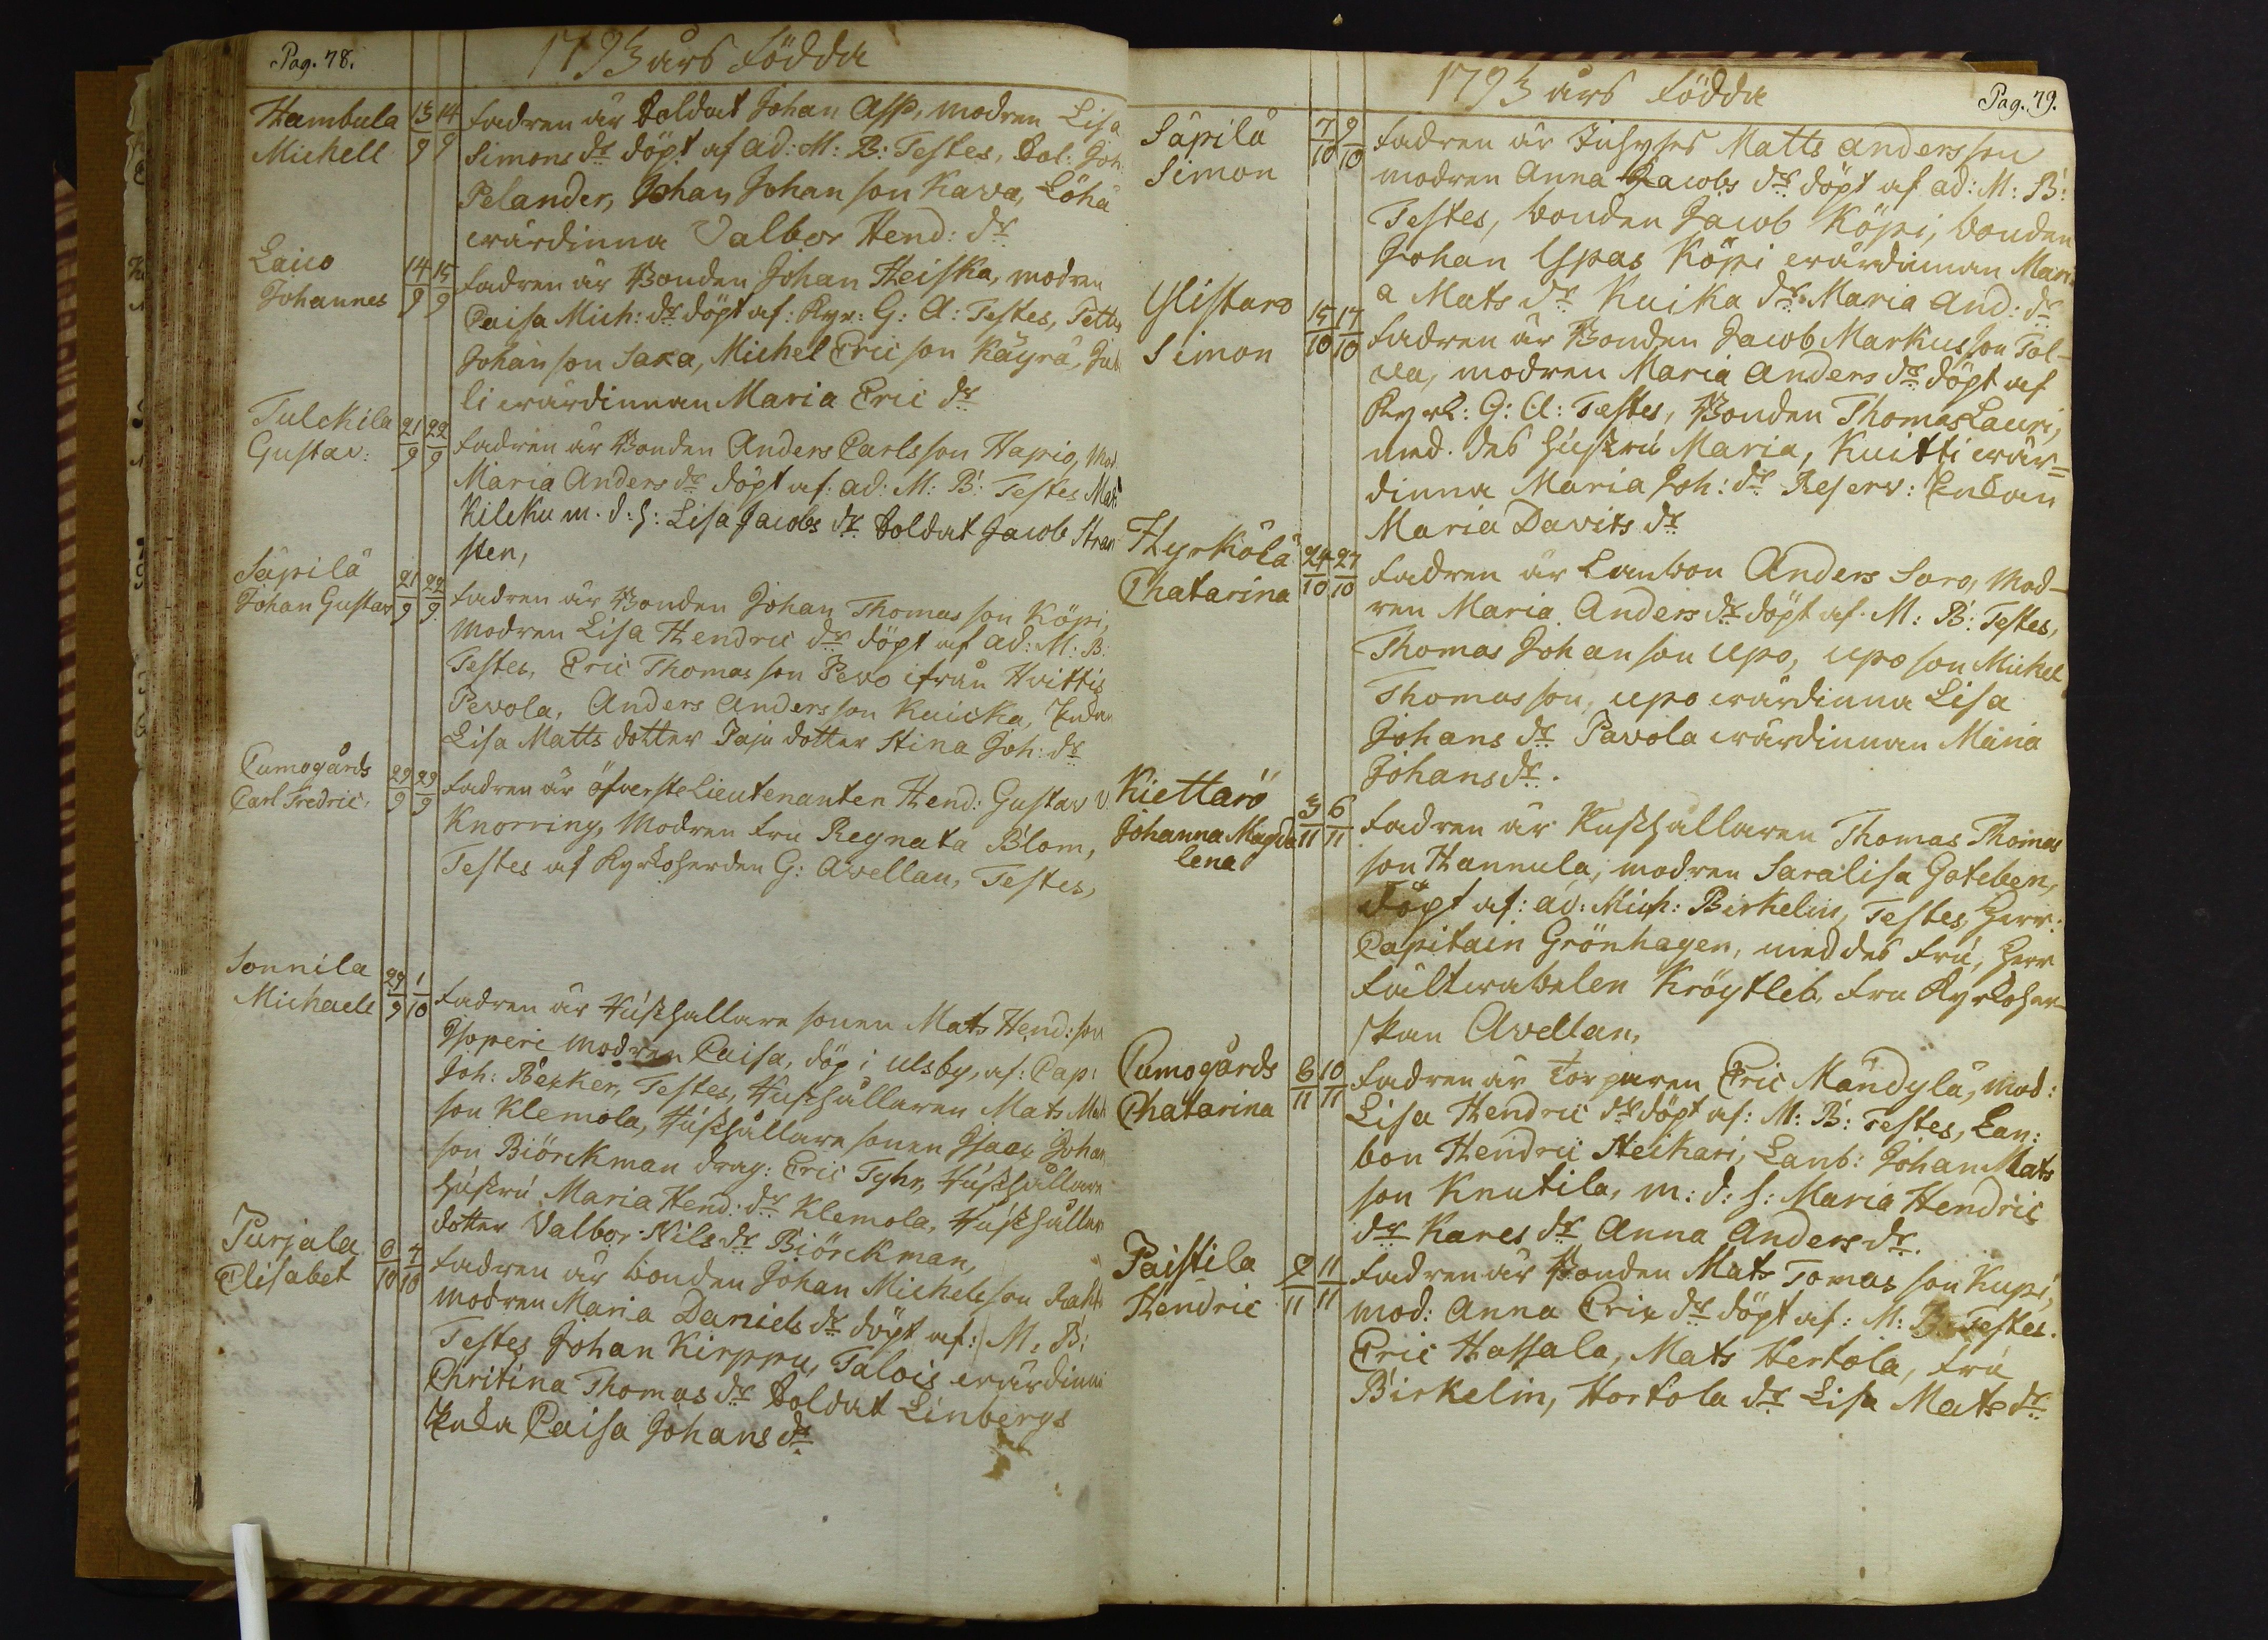 Pag. 78.
1793 års Födda
Hambula 13/9 14/9 Fadren är Soldat Johan Asp, modren Lisa
Michell Simons dr döpt af ad: M: B: Testes, Sol: Joh:
Pelander, Johan Johan son Kava, Löhä
wärdinna Valbor Hend: dr
Laico 14/9 15/9 Fadren är Bonden Johan Heiska, modren
Johannes Caisa Mich: dr döpt af: Kyr: G: A: Testes, Petter
Johan son Saxa, Michel Eric son Käyrä,
li wärdinnan Maria Eric dr
Tulckila 21/9 22/9 Fadren är Bonden Anders Carlsson Hapio, Mod
Gustav: Maria Anders dr döpt af: ad: M: B: Testes Mats
Kilcku m. d: h: Lisa Jacobs dr Soldat Jacob Stran
sten,
Säpilä 21/9 22/9 Fadren är Bonden Johan Thomas son Köpi,
Johan Gustav modren Lisa Hendric dr döpt af ad: M: B:
Testes, Eric Thomas son Pevo ifrån Hvittis
Pevola, Anders Andersson Kuicka, Enkan
Lisa Matts dotter Paju dotter Stina Joh: dr
Cumogårds 29/9 29/9 Fadren är öfversteLieutenanten Hend: Gustav v.
Carl Fredric, Knorring, Modren Fru Regnata Blom,
Testes af Kyrkoherden G: Avellan, Testes,
Sonnila 29/9 1/10 Fadren är Hushållare sonen Mats Hend: son
Michaell Isoperi modren Caisa, döp i Ulsby, af: Cap:
Joh: Bexker, Testes, Hushållaren Mats Mats
son Klemola, Hushållare sonen Isaac Johan
son Biörckman drag: Eric Tyhr, Hushållare
hustru Maria Hend: dr Klemola, Hushållare
dotter Valbor Nils dr Biörckman,
Purjala 6/10 7/10 Fadren är bonden Johan Michels son
Elisabet modren Maria Daniels dr döpt af: M: B:
Testes Johan Kirppu, Talois wärdinna
Christina Thomas dr Soldat Linbergs
Enka Caisa Johans dr
1793 års Födda
Pag. 79.
Säpilä 7/10 9/10 Fadren är Inhyses Matts Andersson
Simon modren Anna Jacobs dr döpt af ad: M: B:
Testes, bonden Jacob Köpi, bonden
Johan Uspas Köpi wärdinnan Mari
a Mats dr Kuika dr Maria And: dr
Ylistaro 15/10 17/10 Fadren är Bonden Jacob Markusson Tol-
Simon va, modren Maria Anders dr döpt af
Kyrk: G: A: Testes, Bonden Thomas Lauri,
med. des hustru Maria, Kuitti wär=
dinna Maria Joh: dr Reserv: Enkan
Maria Davits dr
Hyrkölä 24/10 27/10 Fadren är Lanbon Anders Soro, Mod-
Chatarina ren Maria Anders dr döpt af. M: B: Testes,
Thomas Johan son Upo, Upo son Michel
Thomas son, Upo wärdinna Lisa
Johans dr Pavola wärdinnan Maria
Johans dr.
Kiettarö 3/11 6/11 Fadren är Hushållaren Thomas Thomas
Johanna Magda son Hannula, modren Saralisa Goteben,
lena döpt af: ad: Mich: Birkelin, Testes, Herr:
Capitain Grönhagen, med des Fru, Herr
Fältwäbelen Krögtleb, Fru Kyrkoher-
skan Avellan,
Cumogårds 6/11 10/11 Fadren är Torparen Eric Mändylä, mod:
Chatarina Lisa Hendric dr döpt af: M: B: Testes, Lan:
bon Hendric Heikari, Lanb: Johan Mats
son Knutila, m: d: h: Maria Hendric
dr Kares dr Anna Anders dr.
Paistila 9/11 11/11 Fadren är Bonden Mats Tomas son Kupi,
Hendric mod: Anna Eric dr döpt af: M: B: Testes.
Eric Hassala, Mats Hertola, Fru
Birkelin, Hortola dr Lisa Mats dr